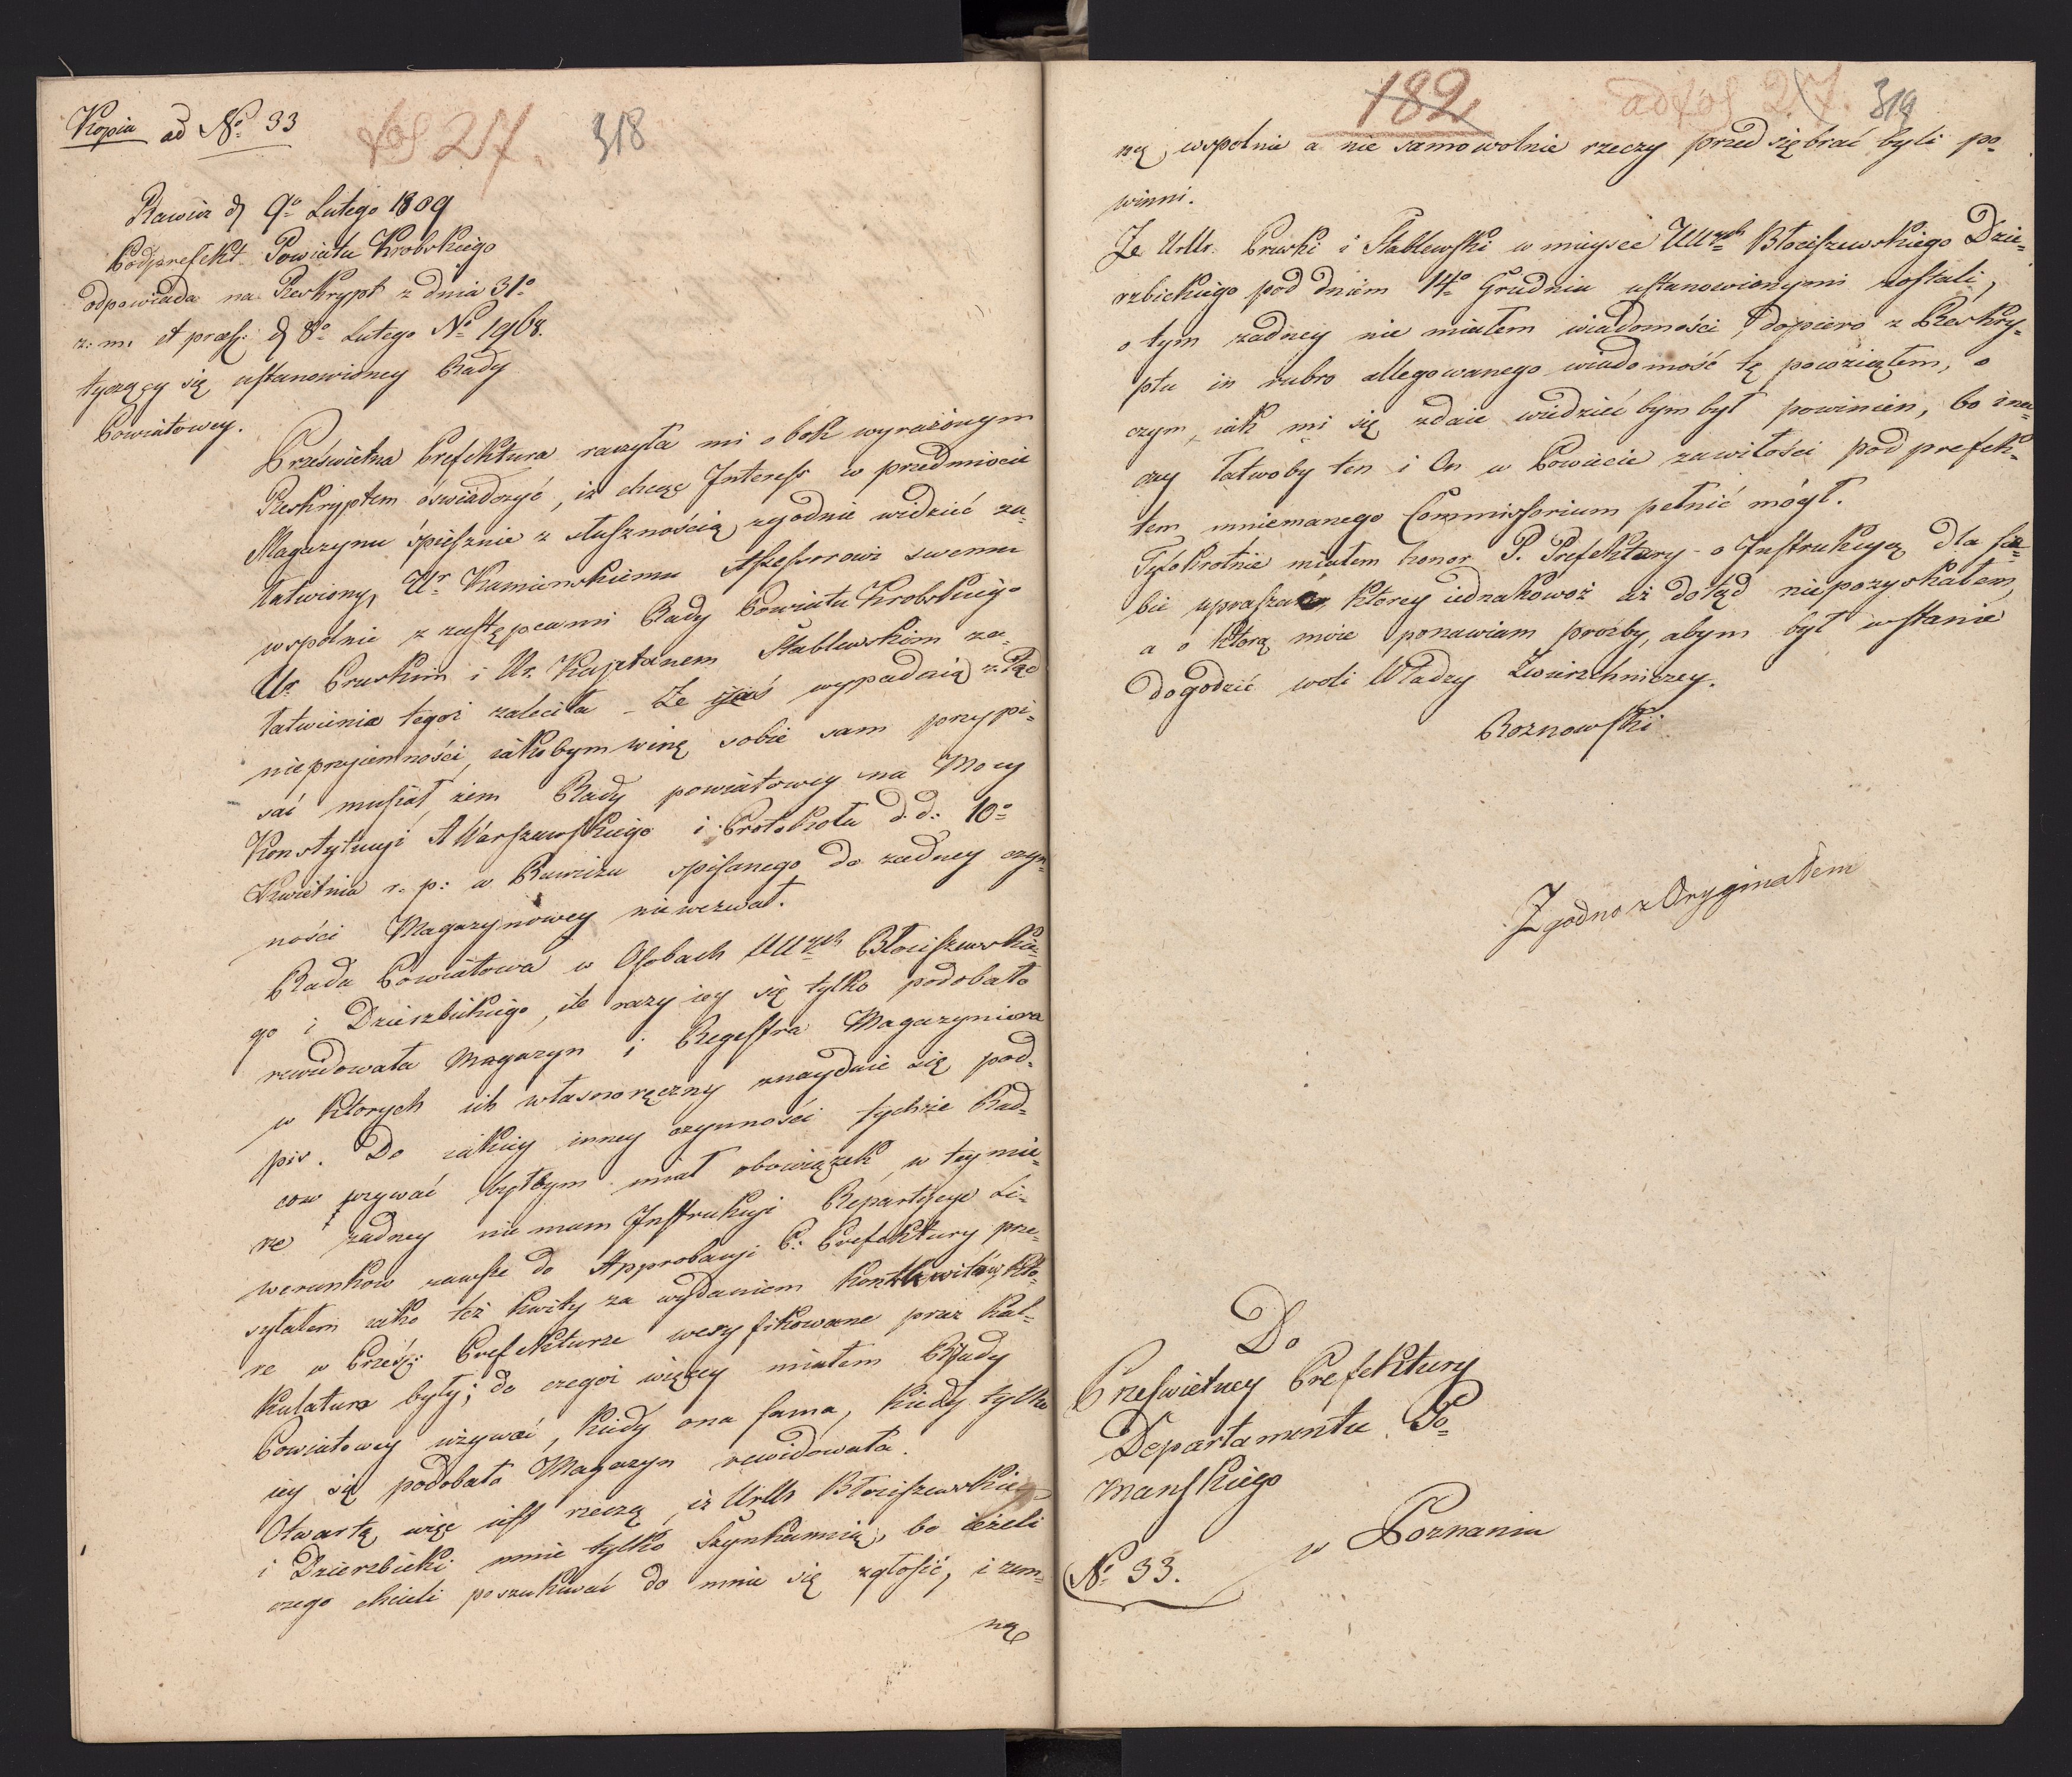 Kopia ad No 33
fol 27. 318
Rawicz d 9o Lutego 1809
Podprefekt Powiatu Krobskiego
odpowiada na Reskrypt z dnia 31o
z: m: et præs: d 8o Lutego No 1968.
tyczący się ustanowioney Rady
Powiatowey.
Prześwietna Prefektura raczyła mi obok wyrażonym
Reskryptem oświadczyć, iż chcąc Interess w przedmiocie
Magazynu śpiesznie z słusznością zgodnie widzieć za=
łatwiony, Ur Kamieńskiemu Assessorowi swemu
wspolnie z zastępcami Rady Powiatu Krobskiego
Ur. Pruskim i Ur. Kajetanem Stablewskim za=
łatwienie tegoż zaleciła – Że zaś wypadnią ztąd
nieprzyiemności, iakobym winę sobie sam przypi=
sać musiał, żem Rady powiatowey na Mocy
Konstytucyi X Warszawskiego i Protokołu d.d: 10o
Kwietnia r. p: w Rawiczu spisanego do żadney czyn=
ności Magazynowey niewezwał.
Rada Powiatowa w Osobach UUrych Błociszewskie=
go i Dzierzbickiego, ile razy iey się tylko podobało
rewidowała Magazyn i Regestra Magazyniera
w ktorych ich własnoręczny znayduie się pod=
pis. Do iakiey inney czynności tychże Rad=
cow wzywać byłbym miał obowiązek, w tey mie=
rze żadney nie mam Instrukcyi Repartycye Li=
werunkow zawsze do Approbacyi P: Prefektury prze=
syłałem iako też kwity za wydaniem kontrkwitów, kto=
re w Prześ: Prefekturze weryfikowane przez Kal=
kulaturę były; do czegoż więcey miałem Rady
Powiatowey używać, kiedy ona sama, kiedy tylko
iey się podobało Magazyn rewidowała.
Otwartą więc iest rzeczą, iż UrUr Błociszewski
i Dzierzbicki mnie tylko szynkanuią, bo ieżeli
czego chcieli poszukiwać do mnie się zgłosić, i zem=
ną
182 ad fol 27. 319
ną wspolnie a nie samowolnie rzeczy przedsiębrać byli po=
winni.
Że UrUr. Pruski i Stablewski w mieysce UUrych Błociszewskiego Dzie=
rzbickiego pod dniem 14o Grudnia ustanowionymi zostali,
o tym żadney nie miałem wiadomości, dopiero z Reskry=
ptu in rubro allegowanego wiadomość tę powziąłem, o
czym, iak mi się zdaie wiedzieć bym był powinien, bo ina=
czy łatwoby ten i On w Powiecie zawiłości podprefek=
tem mniemanego Commissorium pełnić mógł.
Tylokrotnie miałem honor P. Prefektury o Instrukcyą dla sie=
bie upraszać, ktorey iednakowoż aż dotąd niepozyskałem,
a o ktorą moie ponawiam proźby, abym był wstanie
dogodzić woli Władzy Zwierzchniczey.
Roznowski
Zgodno z Oryginałem
Do
Prześwietney Prefektury
Departamentu Po=
znanskiego
w Poznaniu
No 33.